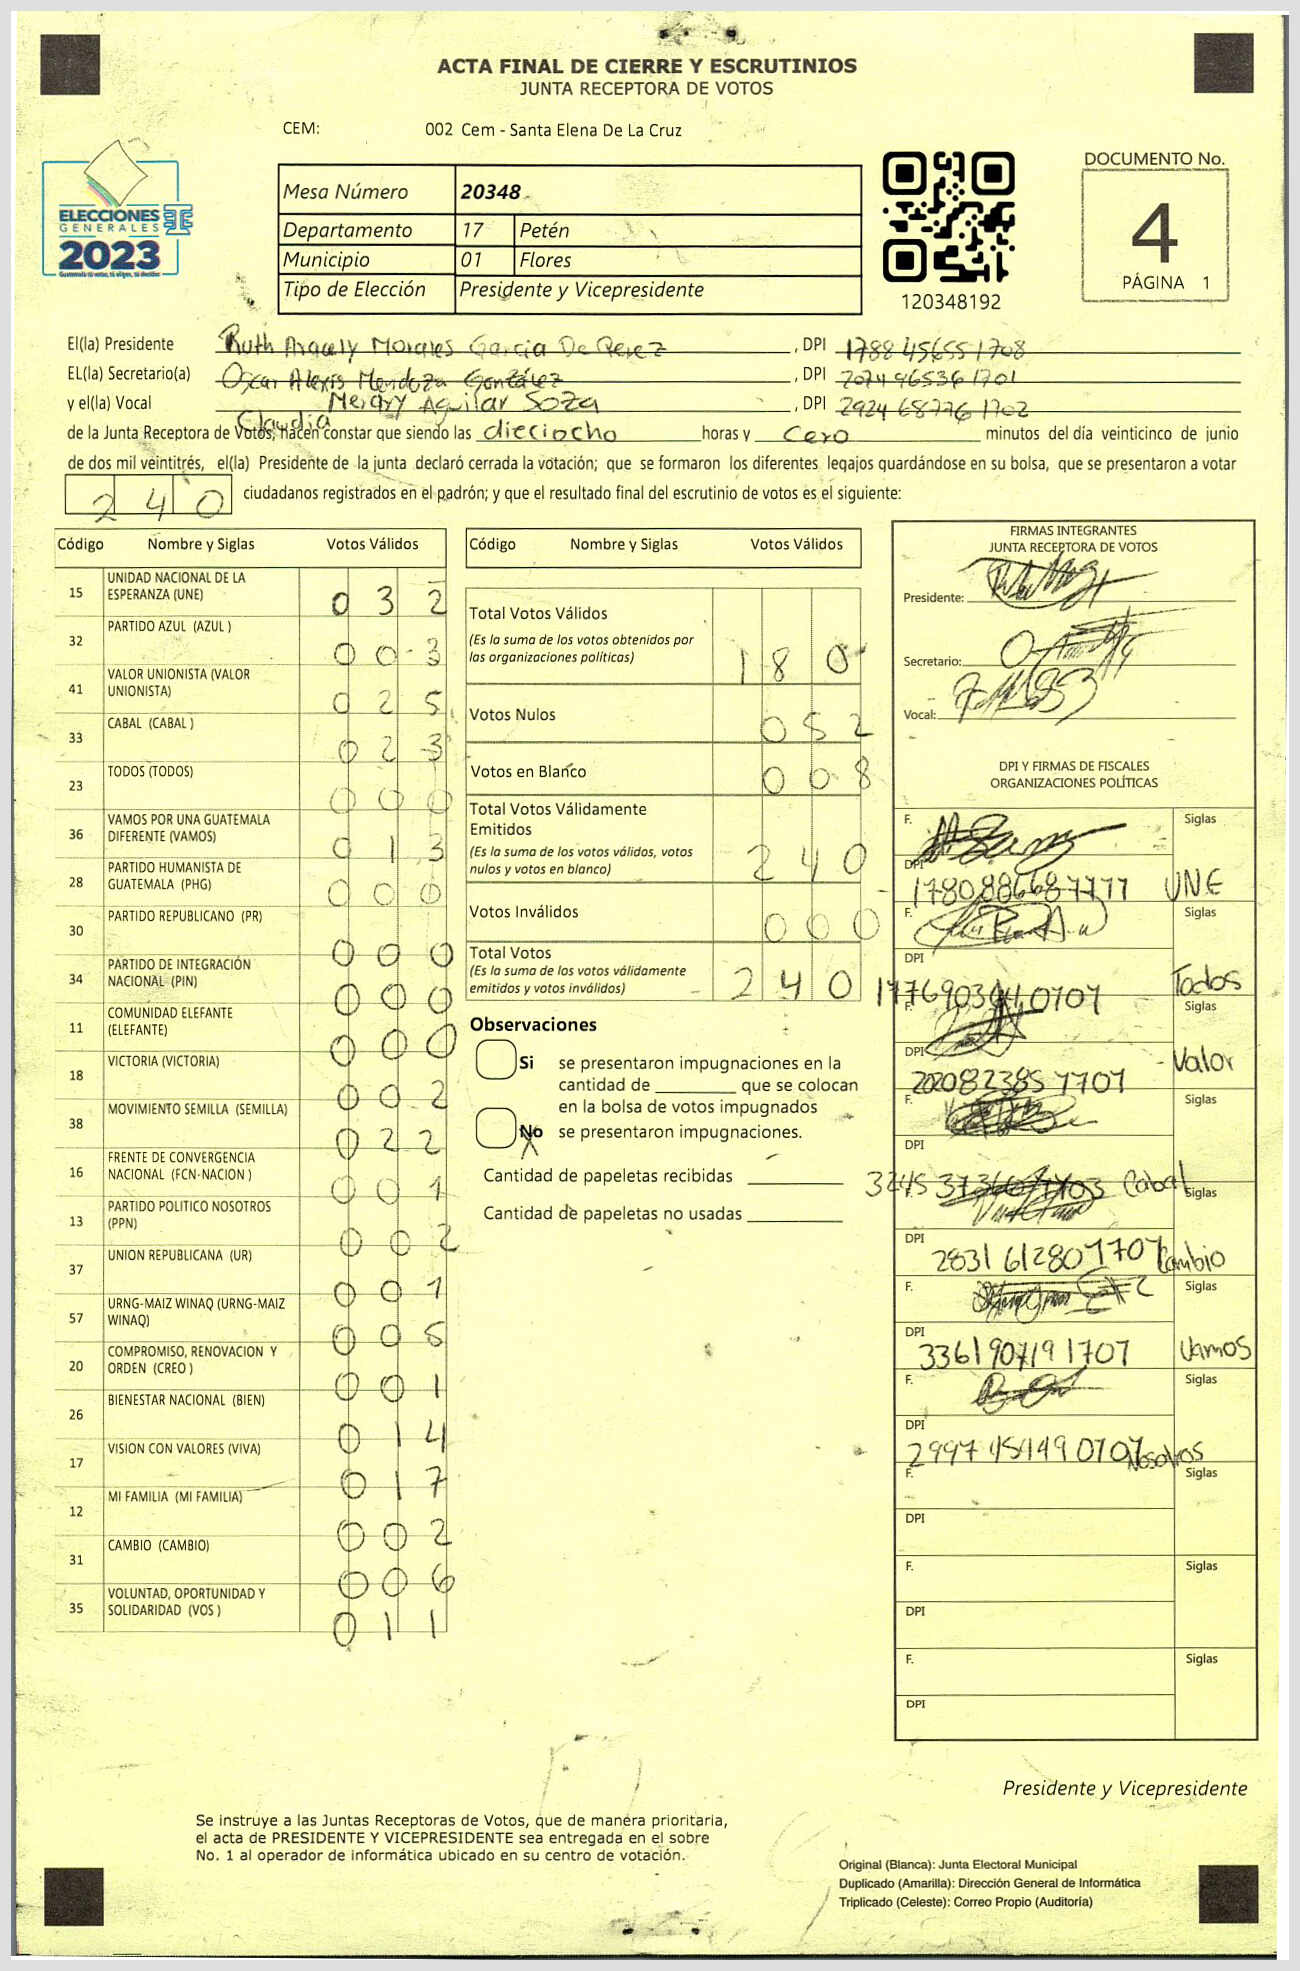 ACTA FINAL DE CIERRE Y ESCRUTINIOS
JUNTA RECEPTORA DE VOTOS
CEM: 002 Cem - Santa Elena De La Cruz
ELECCIONES
GENERALES
2023
Guatemala tú votas, tú eliges, tú decides
Mesa Número 20348
Departamento 17 Petén
Municipio 01 Flores
Tipo de Elección Presidente y Vicepresidente
120348192
DOCUMENTO No.
4
PÁGINA 1
El(la) Presidente Ruth Aracely Morales Garcia De Perez , DPI 1788456551708
EL(la) Secretario(a) Oscar Alexis Mendoza González , DPI 2074965361701
y el(la) Vocal Claudia Merary Aguilar Soza , DPI 2924687761702
de la Junta Receptora de Votos, hacen constar que siendo las dieciocho horas y cero minutos del día veinticinco de junio
de dos mil veintitrés, el(la) Presidente de la junta declaró cerrada la votación; que se formaron los diferentes legajos guardándose en su bolsa, que se presentaron a votar
240 ciudadanos registrados en el padrón; y que el resultado final del escrutinio de votos es el siguiente:
Código Nombre y Siglas Votos Válidos
15 UNIDAD NACIONAL DE LA ESPERANZA (UNE) 032
32 PARTIDO AZUL (AZUL ) 003
41 VALOR UNIONISTA (VALOR UNIONISTA) 025
33 CABAL (CABAL ) 023
23 TODOS (TODOS) 000
36 VAMOS POR UNA GUATEMALA DIFERENTE (VAMOS) 013
28 PARTIDO HUMANISTA DE GUATEMALA (PHG) 000
30 PARTIDO REPUBLICANO (PR) 000
34 PARTIDO DE INTEGRACIÓN NACIONAL (PIN) 000
11 COMUNIDAD ELEFANTE (ELEFANTE) 000
18 VICTORIA (VICTORIA) 002
38 MOVIMIENTO SEMILLA (SEMILLA) 022
16 FRENTE DE CONVERGENCIA NACIONAL (FCN-NACION ) 001
13 PARTIDO POLITICO NOSOTROS (PPN) 002
37 UNION REPUBLICANA (UR) 001
57 URNG-MAIZ WINAQ (URNG-MAIZ WINAQ) 005
20 COMPROMISO, RENOVACION Y ORDEN (CREO ) 001
26 BIENESTAR NACIONAL (BIEN) 014
17 VISION CON VALORES (VIVA) 017
12 MI FAMILIA (MI FAMILIA) 002
31 CAMBIO (CAMBIO) 006
35 VOLUNTAD, OPORTUNIDAD Y SOLIDARIDAD (VOS ) 011
Código Nombre y Siglas Votos Válidos
Total Votos Válidos
(Es la suma de los votos obtenidos por
las organizaciones políticas) 180
Votos Nulos 052
Votos en Blanco 008
Total Votos Válidamente
Emitidos
(Es la suma de los votos válidos, votos
nulos y votos en blanco) 240
Votos Inválidos 000
Total Votos
(Es la suma de los votos válidamente
emitidos y votos inválidos) 240
Observaciones
Si se presentaron impugnaciones en la
cantidad de ________ que se colocan
en la bolsa de votos impugnados
No se presentaron impugnaciones.
X
Cantidad de papeletas recibidas
Cantidad de papeletas no usadas
FIRMAS INTEGRANTES
JUNTA RECEPTORA DE VOTOS
Presidente:
Secretario:
Vocal:
DPI Y FIRMAS DE FISCALES
ORGANIZACIONES POLÍTICAS
F. Siglas
DPI
UNE
F. Siglas
DPI
Todos
F. Siglas
DPI
Valor
F.
Siglas
DPI
Cabal
Siglas
DPI
2831612801707 Cambio
F. Siglas
DPI
3361907191707 Vamos
F. Siglas
DPI
Nosotros
F. Siglas
DPI
F. Siglas
DPI
F. Siglas
DPI
Presidente y Vicepresidente
Se instruye a las Juntas Receptoras de Votos, que de manera prioritaria,
el acta de PRESIDENTE Y VICEPRESIDENTE sea entregada en el sobre
No. 1 al operador de informática ubicado en su centro de votación.
Original (Blanca): Junta Electoral Municipal
Duplicado (Amarilla): Dirección General de Informática
Triplicado (Celeste): Correo Propio (Auditoría)